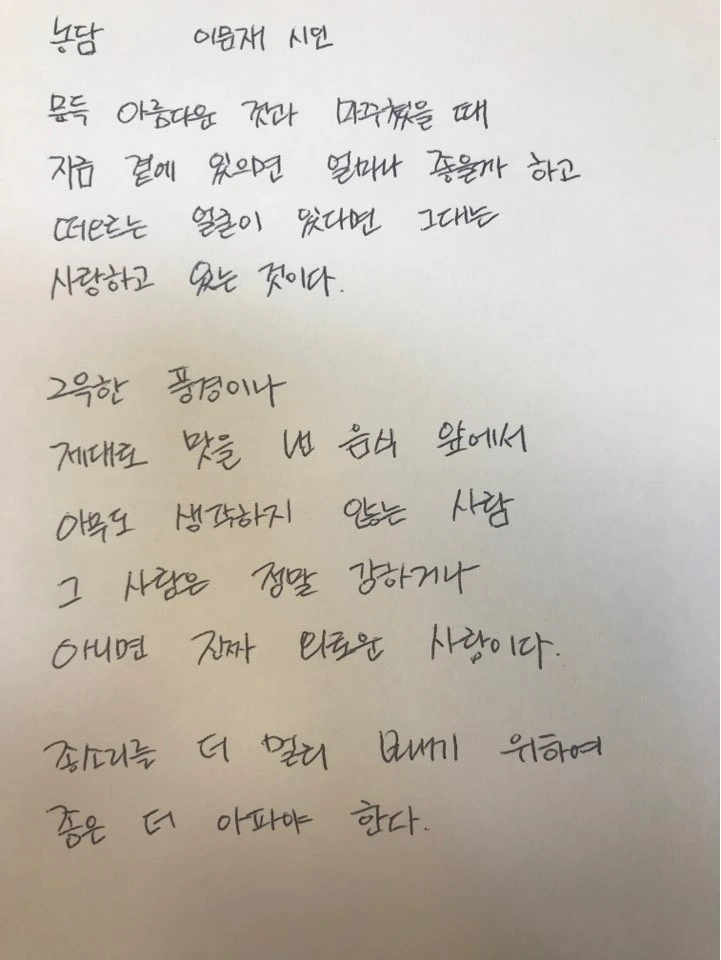 농담 이문재 시인
문득 아름다운 것과 마주쳤을 때
지금 곁에 있으면 얼마나 좋을까 하고
떠오르는 얼굴이 있다면 그대는
사랑하고 있는 것이다.
그윽한 풍경이나
제대로 맛을 낸 음식 앞에서
아무도 생각하지 않는 사람
그 사람은 정말 강하거나
아니면 진짜 외로운 사람이다.
종소리를 더 멀리 보내기 위하여
종은 더 아파야 한다.